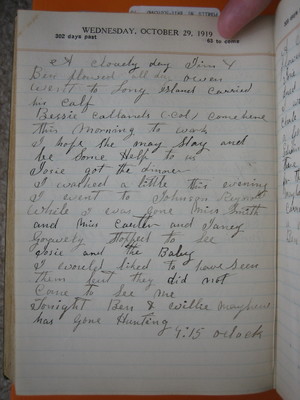 WEDNESDAY, OCTOBER 29, 1919
302 days past
63 to come
A cloudy day Jim &
Ben plowed all day Owen
went to Long Island carried
his calf
Bessie (col) come here
this Morning to work
I hope she may Stay and
be Some Help to us
Josie got the dinner
I washed a little this evening
I went to Johnson
While I was gone Miss Smith
and Miss Carter and Janey
Stopped to see
Josie and the Baby
I would liked to have seen
them but they did not
Come to See me
Tonight Ben & Willie
has Gone Hunting
7:15 oclock